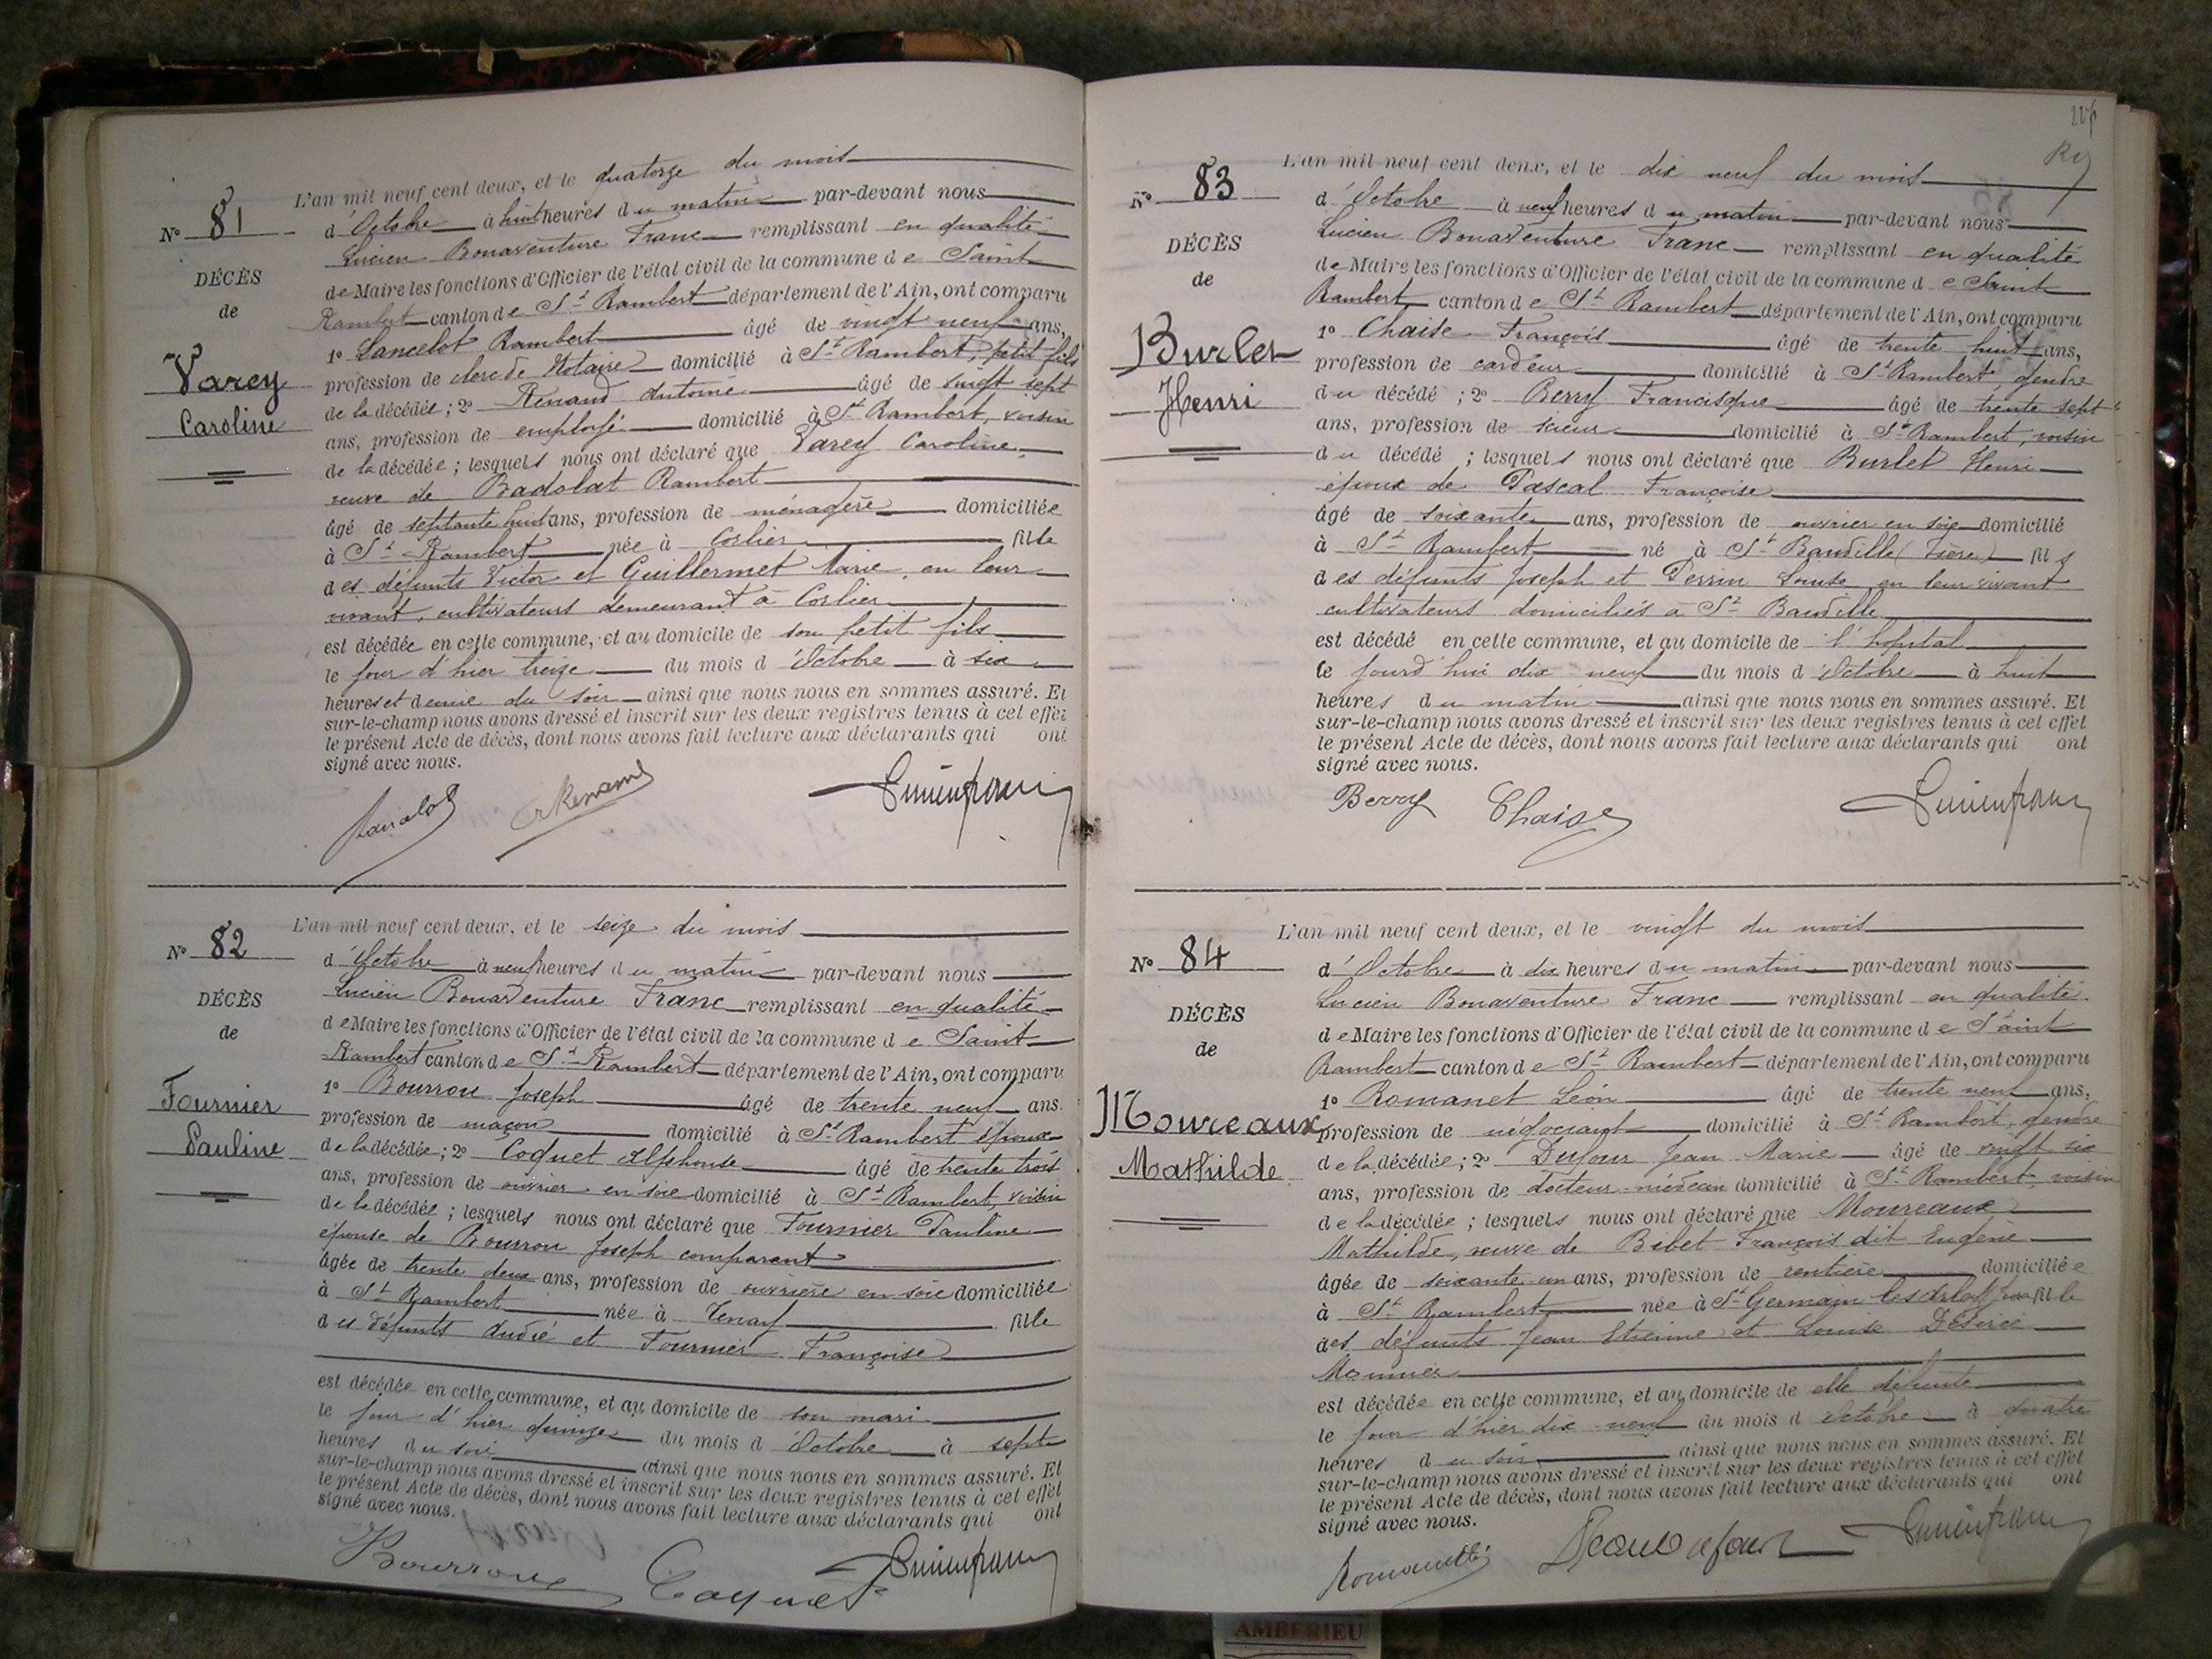 Nº 81
DÉCÈS
de
Varey
Caroline
L'an mil neuf cent deux, et le quatorze du mois
d'Octobre à huit heures du matin par-devant nous
Lucien Bonaventure Franc remplissant en qualité
de Maire les fonctions d'Officier de l'état civil de la commune de Saint
Rambert canton de St Rambert département de l'Ain, ont comparu
1º Lancelot Rambert âgé de vingt neuf ans,
profession de clerc de Notaire domicilié à St Rambert, petit fils
de la décédée; 2º Renaud Antoine âgé de vingt sept
ans, profession de employé domicilié à St Rambert, voisin
de la décédée; lesquels nous ont déclaré que Varey Caroline,
veuve de Badolat Rambert
âgé de septante huit ans, profession de ménagère domiciliée
à St Rambert née à Corlier fille
des défunts Victor et Guillermet Marie, en leur
vivant, cultivateurs demeurant à Corlier
est décédée en cette commune, et au domicile de son petit fils
le jour d'hier treize du mois d'Octobre à six
heures et demie du soir ainsi que nous nous en sommes assuré. Et
sur-le-champ nous avons dressé et inscrit sur les deux registres tenus à cet effet
le présent Acte de décès, dont nous avons fait lecture aux déclarants qui ont
signé avec nous.
Nº 82
DÉCÈS
de
Fournier
Pauline
L'an mil neuf cent deux, et le seize du mois
d'Octobre à neuf heures du matin par-devant nous
Lucien Bonaventure Franc remplissant en qualité
de Maire les fonctions d'Officier de l'état civil de la commune de Saint
Rambert canton de St Rambert département de l'Ain, ont comparu
1º Bourrou Joseph âgé de trente neuf ans.
profession de maçon domicilié à St Rambert époux
de la décédée; 2º Coquet Alphonse âgé de trente trois
ans, profession de ouvrier en soie domicilié à St Rambert, voisin
de la décédée; lesquels nous ont déclaré que Fournier Pauline
épouse de Bourrou Joseph comparant
âgée de trente deux ans, profession de ouvrière en soie domiciliée
à St Rambert née à Tenay fille
des défunts André et Fournier Françoise
est décédée en cette commune, et au domicile de son mari
le jour d'hier quinze du mois d'Octobre à sept
heures du soir ainsi que nous nous en sommes assuré. Et
sur-le-champ nous avons dressé et inscrit sur les deux registres tenus à cet effet
le présent Acte de décès, dont nous avons fait lecture aux déclarants qui ont
signé avec nous.
Bourrou Coquet
Nº 83
DÉCÈS
de
Burlet
Henri
L'an mil neuf cent deux, et le dix neuf du mois
d'Octobre à neuf heures du matin par-devant nous
Lucien Bonaventure Franc remplissant en qualité
de Maire les fonctions d'Officier de l'état civil de la commune de Saint
Rambert canton de St Rambert département de l'Ain, ont comparu
1º Chaise François âgé de trente huit ans,
profession de cardeur domicilié à St Rambert, gendre
du décédé; 2º Berry Francisque âgé de trente sept
ans, profession de scieur domicilié à St Rambert, voisin
du décédé; lesquels nous ont déclaré que Burlet Henri
époux de Pascal Françoise
âgé de soixante ans, profession de ouvrier en soie domicilié
à St Rambert né à St Baudille (Isère) fils
des défunts Joseph et Perrin Louise en leur vivant
cultivateurs domiciliés à St Baudille
est décédé en cette commune, et au domicile de l'hopital
le jourd'hui dix neuf du mois d'Octobre à huit
heures du matin ainsi que nous nous en sommes assuré. Et
sur-le-champ nous avons dressé et inscrit sur les deux registres tenus à cet effet
le présent Acte de décès, dont nous avons fait lecture aux déclarants qui ont
signé avec nous.
Berry Chaise
Nº 84
DÉCÈS
de
Moureaux
Mathilde
L'an mil neuf cent deux, et le vingt du mois
d'Octobre à dix heures du matin par-devant nous
Lucien Bonaventure Franc remplissant en qualité
de Maire les fonctions d'Officier de l'état civil de la commune de Saint
Rambert canton de St Rambert département de l'Ain, ont comparu
1º Romanet Léon âgé de trente neuf ans,
profession de négociant domicilié à St Rambert, gendre
de la décédée; 2º Dufour Jean Marie âgé de vingt six
ans, profession de docteur-médecin domicilié à St Rambert voisin
de la décédée; lesquels nous ont déclaré que Moureaux
Mathilde, veuve de Bibet François dit Eugène
âgée de soixante un ans, profession de rentière domiciliée
à St Rambert née à St Germain fille
des défunts Jean Etienne et Louise Désirée
Monnier
est décédée en cette commune, et au domicile de elle défunte
le jour d'hier dix neuf du mois d'Octobre à quatre
heures du soir ainsi que nous nous en sommes assuré. Et
sur-le-champ nous avons dressé et inscrit sur les deux registres tenus à cet effet
le présent Acte de décès, dont nous avons fait lecture aux déclarants qui ont
signé avec nous.
AMBERIEU